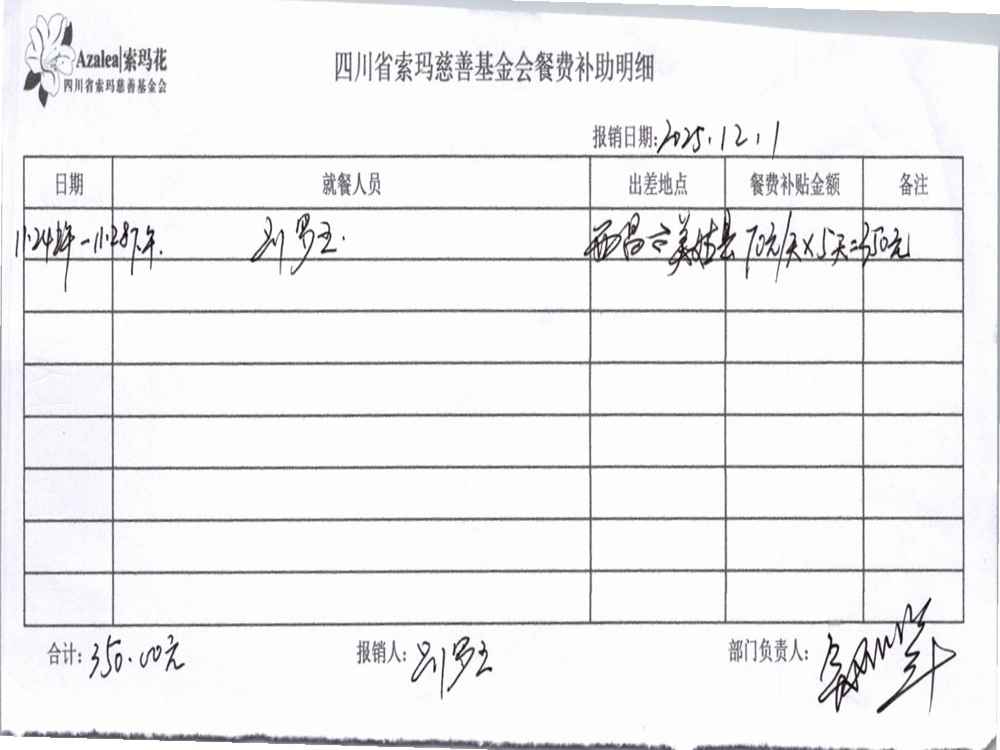 Azalea|索玛花
四川省索玛慈善基金会
四川省索玛慈善基金会餐费补助明细
报销日期: 2025.12.1
日期 就餐人员 出差地点 餐费补贴金额 备注
11.24上午-11.28下午. 刘罗主. 西昌 美姑县 70元/天×5天=350元
合计: 350.00元 报销人: 刘罗主 部门负责人: